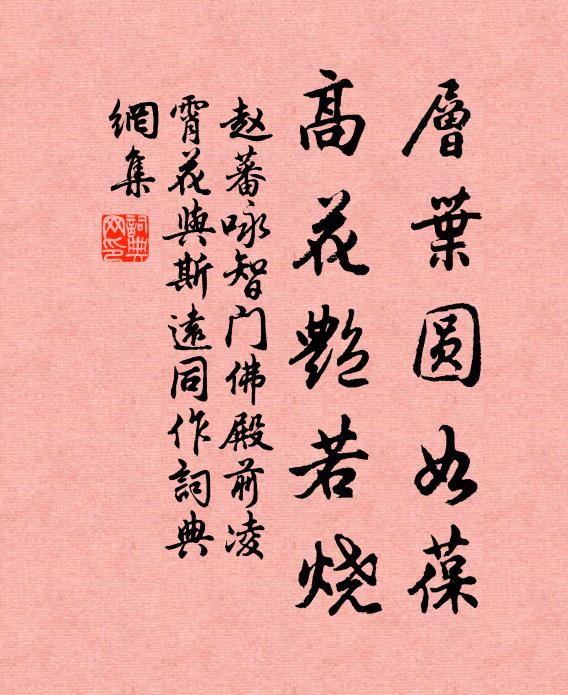 層葉圆如葆
高花艷若烧
赵蕃咏智门佛殿前凌
霄花與斯遠同作詞典
網集
詞典
网印